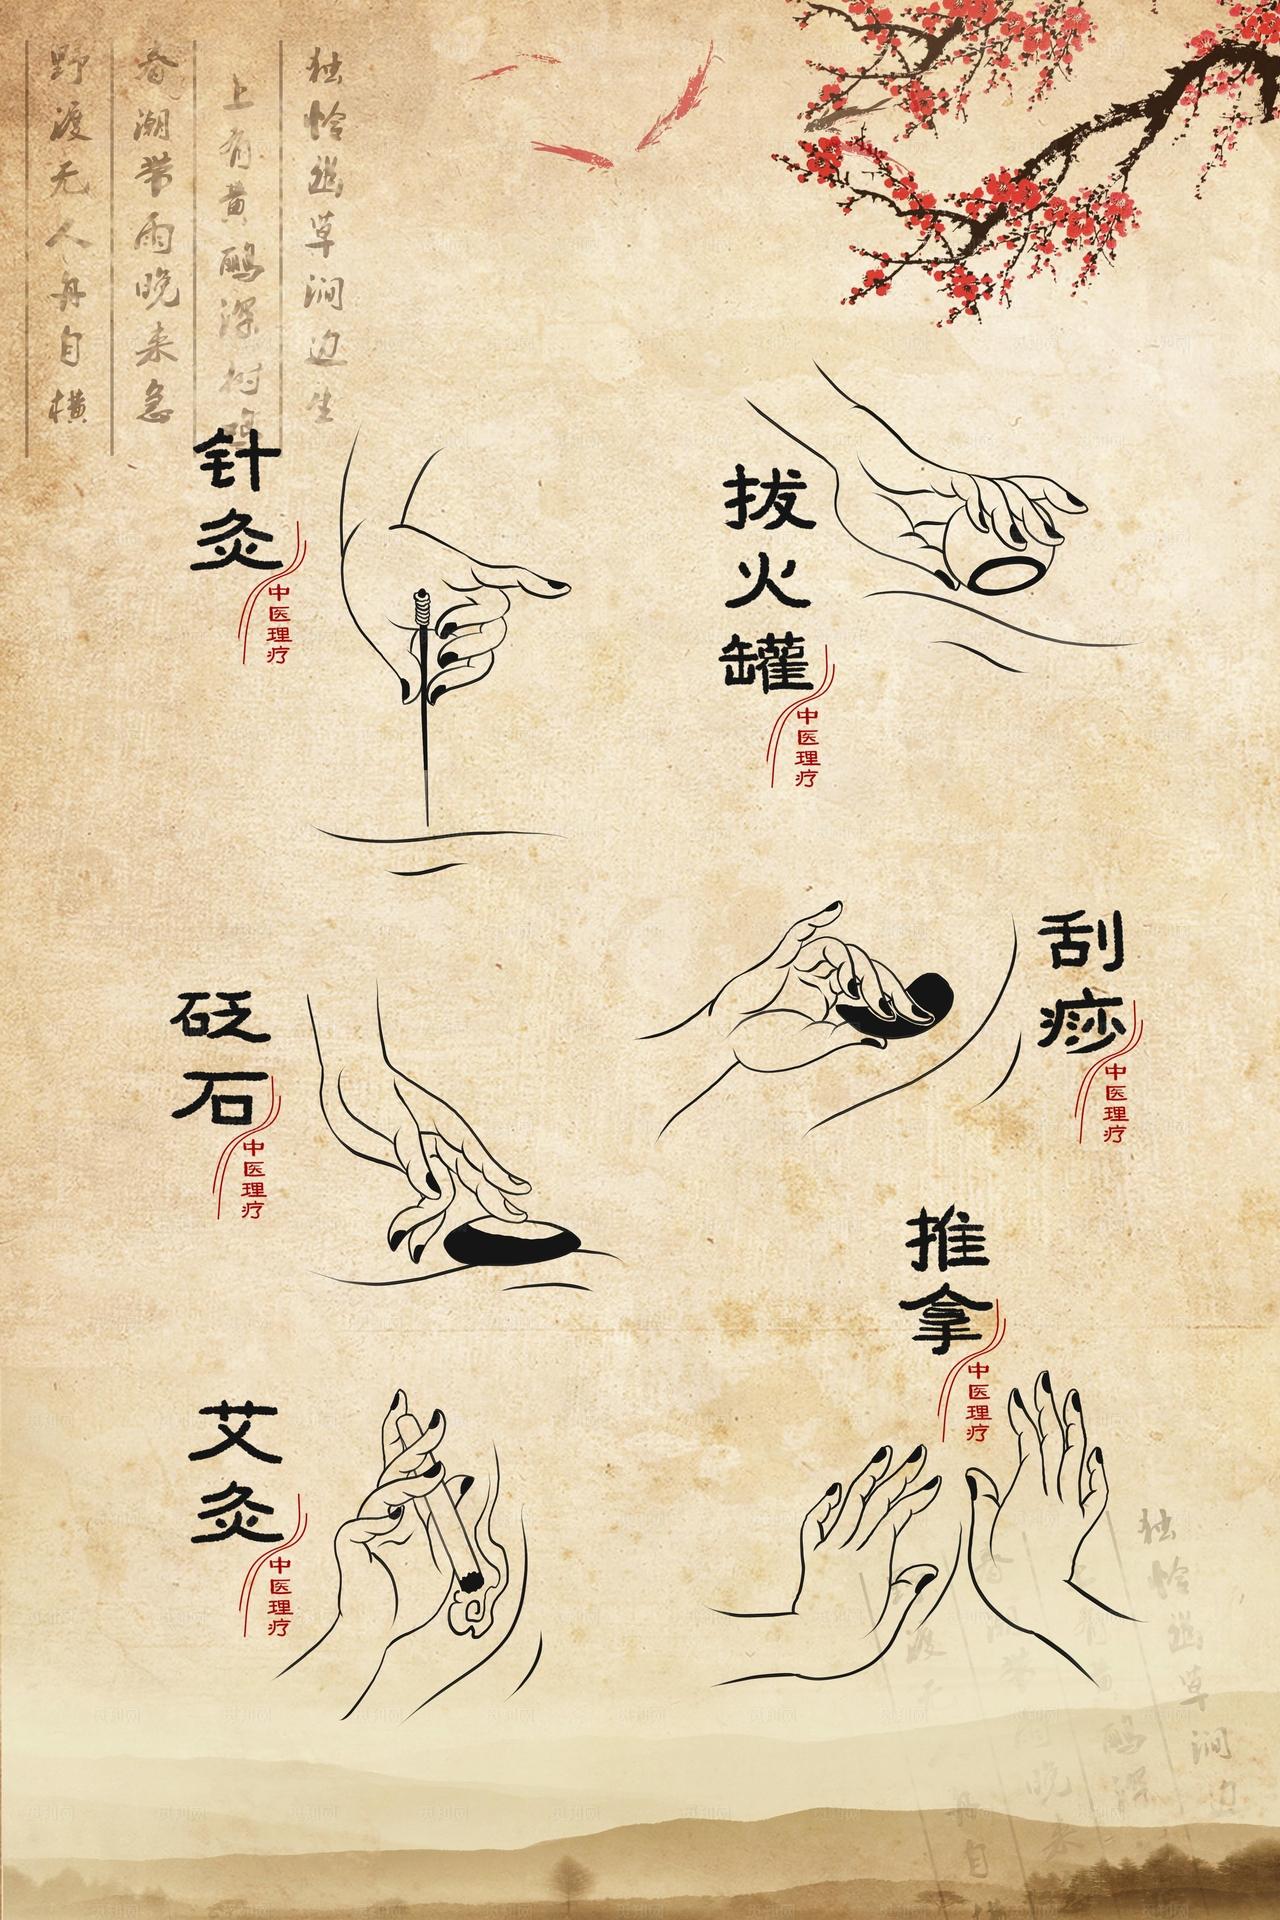 独怜幽草涧边生
上有黄鹂深树鸣
春潮带雨晚来急
野渡无人舟自横
针灸
中医理疗
拔火罐
中医理疗
刮痧
中医理疗
砭石
中医理疗
推拿
中医理疗
艾灸
中医理疗
独怜幽草涧边